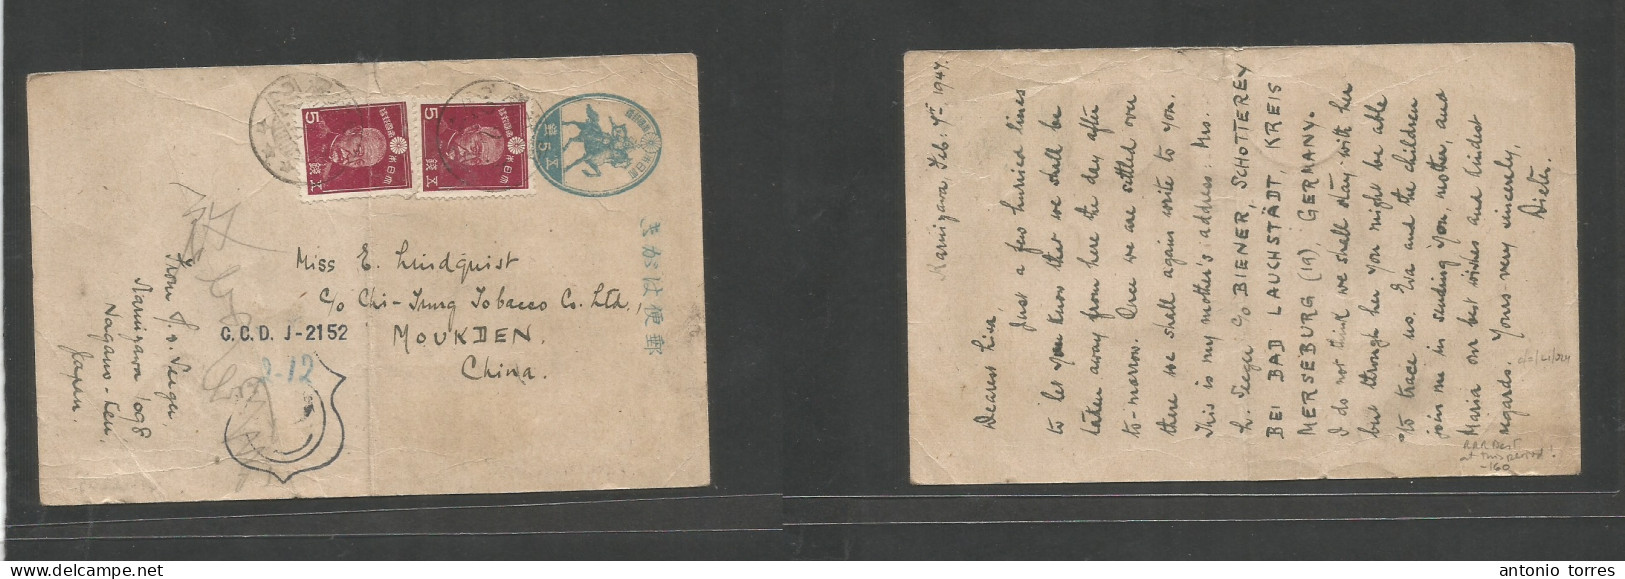 5
5
銭五
銭五
日本郵便
日本郵便
銭5五
きがは便郵
Miss E. Lindquist
c/o Chi-Tung Tobacco Co. Ltd.,
MOUKDEN.
China.
C.C.D. J-2152
2-12
From
Karuizawa 1098
Nagano-Ken,
Japan.
Karuizawa, Feb. 7th 1947.
Dearest
Just a few hurried lines
to let you know that we shall be
taken away from here the day after
to-morrow. Once we are settled over
there we shall again write to you.
This is my mother's address: Mrs.
c/o BIENER, SCHOTTEREY
BEI BAD LAUCHSTÄDT, KREIS
MERSEBURG (19) GERMANY.
I do not think we shall stay with her
but through her you might be able
to trace us. Eva and the children
join me in sending you, mother, and
Maria our best wishes and kindest
regards. Yours very sincerely,
Dieter.
RRR Dest
at this period!
-160
antonio torres